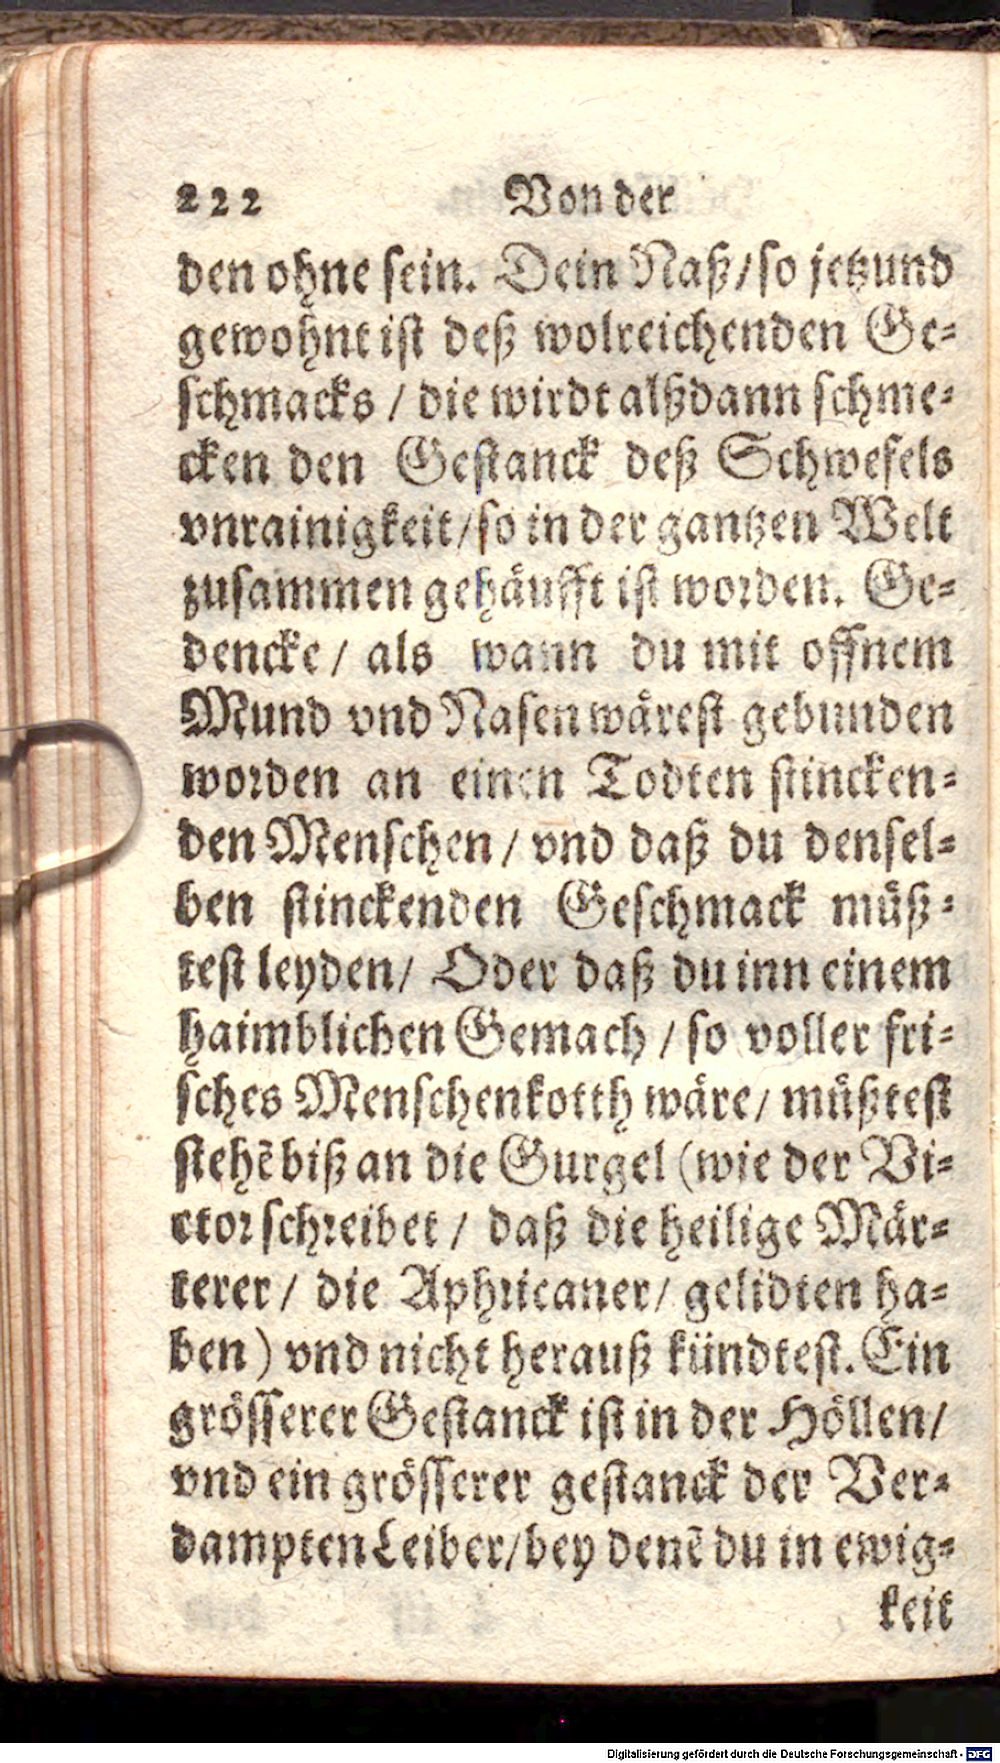 222 Von der
den ohne sein. Dein Naß/so jetzund
gewohnt ist deß wolreichenden Ge-
schmacks / die wirdt alßdann schme-
cken den Gestanck deß Schwefels
vnrainigkeit/so in der gantzen Welt
zusammen gehäufft ist worden. Ge-
dencke/ als wann du mit offnem
Mund vnd Nasen wärest gebunden
worden an einen Todten stincken-
den Menschen / vnd daß du densel-
ben stinckenden Geschmack müß-
test leyden/ Oder daß du inn einem
haimblichen Gemach / so voller fri-
sches Menschenkotth wäre/ müßtest
stehẽ biß an die Gurgel (wie der Vi-
ctor schreibet / daß die heilige Mär-
terer/ die Aphricaner/ gelidten ha-
ben) vnd nicht herauß kündtest. Ein
grösserer Gestanck ist in der Höllen/
vnd ein grösserer gestanck der Ver-
dampten Leiber/bey denẽ du in ewig-
keit
Digitalisierung gefördert durch die Deutsche Forschungsgemeinschaft - DFG